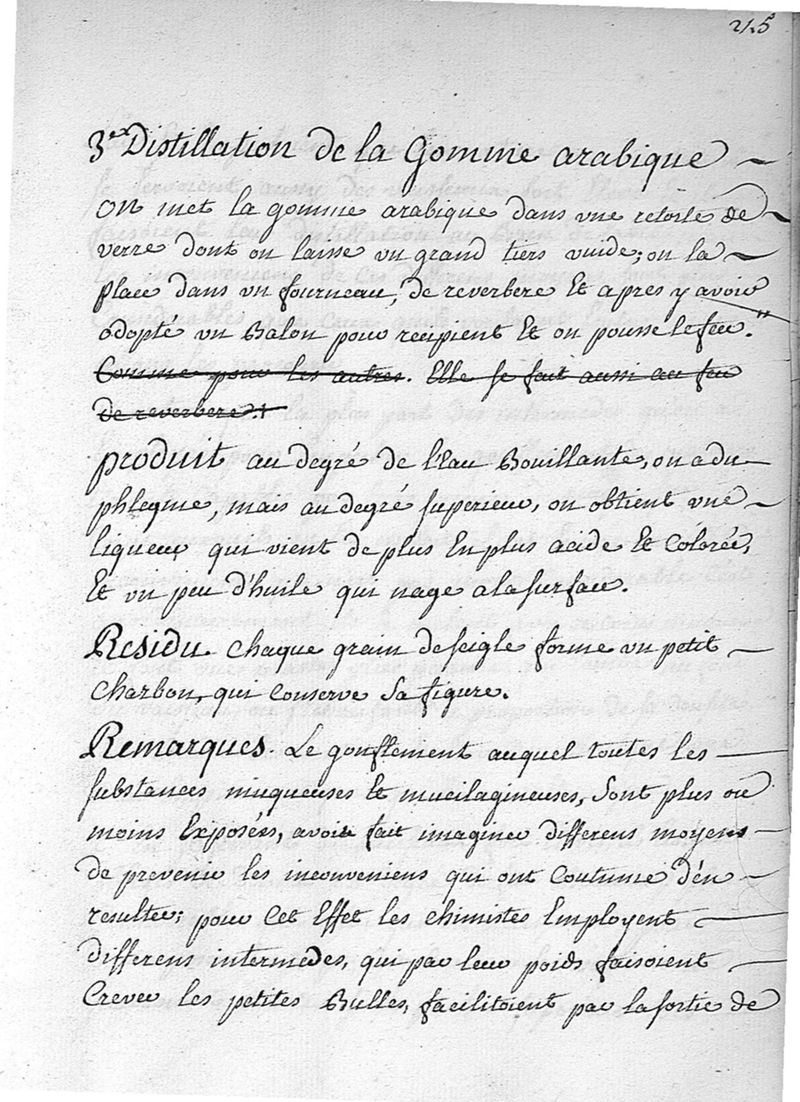 215
3.ex Distillation de la Gomme arabique
on met la gomme arabique dans vne retorte de
verre dont on laisse vn grand tiers vuide; on la
place dans vn fourneau, de reverbere Et apres y avoir
adopté vn Balon pour recipient Et on pousse le feu.
Comme pour les autres. Elle se fait aussi au feu
de reverbere.
produit au degré de l'Eau Bouillante, on a du
phlegme, mais au degré superieur, on obtient vne
liqueur qui vient de plus En plus acide Et Colorée,
Et vn peu d'huile qui nage a la surface.
Residu. chaque grain de seigle forme vn petit
charbon, qui Conserve Sa figure.
Remarques. Le gonflement auquel toutes les
substances muqueuses Et mucilagineuses, Sont plus ou
moins Exposées, avoit fait imaginer differens moyens
de prevenir les inconveniens qui ont Coutume d'en
resulter; pour Cet Effet les chimistes Employent
differens intermedes, qui par leur poids faisoient
Crever les petites Bulles, facilitoient par la sortie de